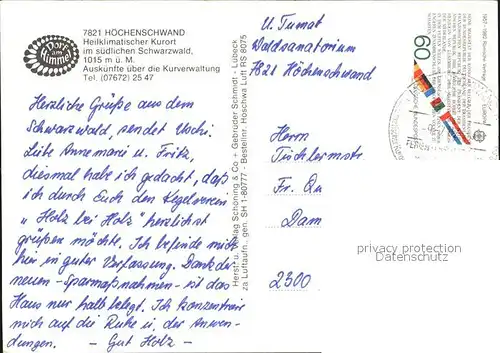 Dorf am Himmel
7821 HÖCHENSCHWAND
Heilklimatischer Kurort
im südlichen Schwarzwald,
1015 m ü. M.
Auskünfte über die Kurverwaltung
Tel. (07672) 25 47
Herzliche Grüße aus dem
Schwarzwald, sendet Uschi.
Liebe Annemarie u. Fritz,
diesmal habe ich gedacht, daß
ich durch Euch den Kegelverein
"Holz bei Holz" herzlichst
grüßen möchte. Ich befinde mich
hier in guter Verfassung. Dank der
neuen - Sparmaßnahmen - ist das
Haus nur halb belegt. Ich konzentriere
mich auf die Ruhe u. der Anwen-
dungen. - Gut Holz -
Herst. u. Verlag Schöning & Co + Gebrüder Schmidt - Lübeck
za Luftaufn., gen. SH 1-80777 - Bestellnr. Hoschwa Luft RS 8075
U. Tumat
Waldsanatorium
7821 Höchenschwand
Herrn
Tischlermstr
Fr. Qu
Dam
2300
60
privacy protection
Datenschutz